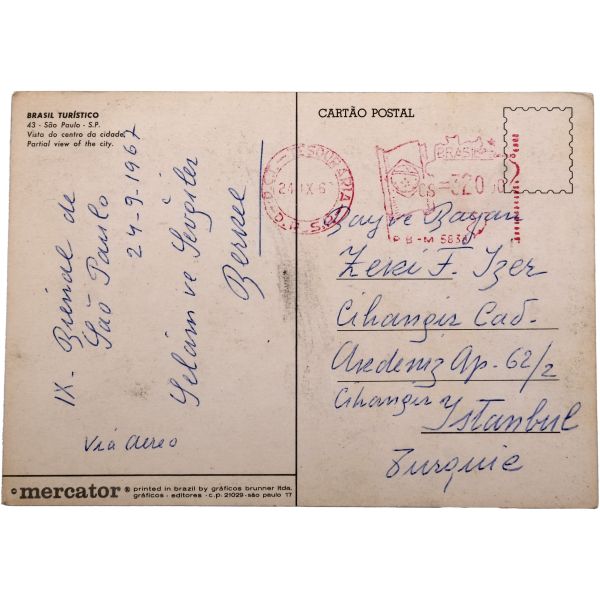 BRASIL TURÍSTICO
43 - São Paulo - S.P.
Vista do centro da cidade.
Partial view of the city.
CARTÃO POSTAL
IX - Bienal de
São Paulo
24-9-1967
Selâm ve Sevgiler
Via Aereo
24 IX 6
BRASIL
=320
PB-M
Bay ve Bayan
Zeki F. Izer
Cihangir Cad.
Akdeniz Ap. 62/2
Cihangir
Istanbul
Turquie
© mercator ® printed in brazil by gráficos brunner ltda.
gráficos - editores - c.p. 21029 - são paulo 17